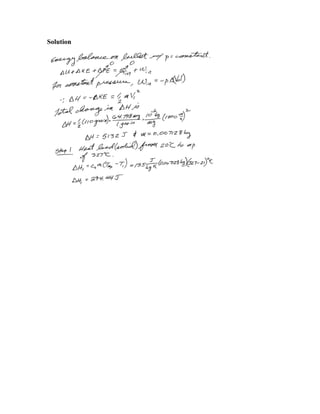 Solution
Energy balance on bullet w/ p = constant.
ΔU + ΔKE + ΔPE = Q + W
For constant pressure, W = -pΔ(V)
∴ ΔH = -ΔKE = 1/2 m V₁²
Total change in ΔH is
ΔH = 1/2 (110 grain) · 64.799 mg / 1 grain · 10⁻⁶ kg / mg (1200 m/s)²
ΔH = 5132 J & m = 0.007128 kg
Step 1 Heat lead (solid) from 20°C to mp
of 327°C.
ΔH₁ = m (T - T₁) = J / kg °C (0.007128 kg)(327-20)°C
ΔH₁ = J